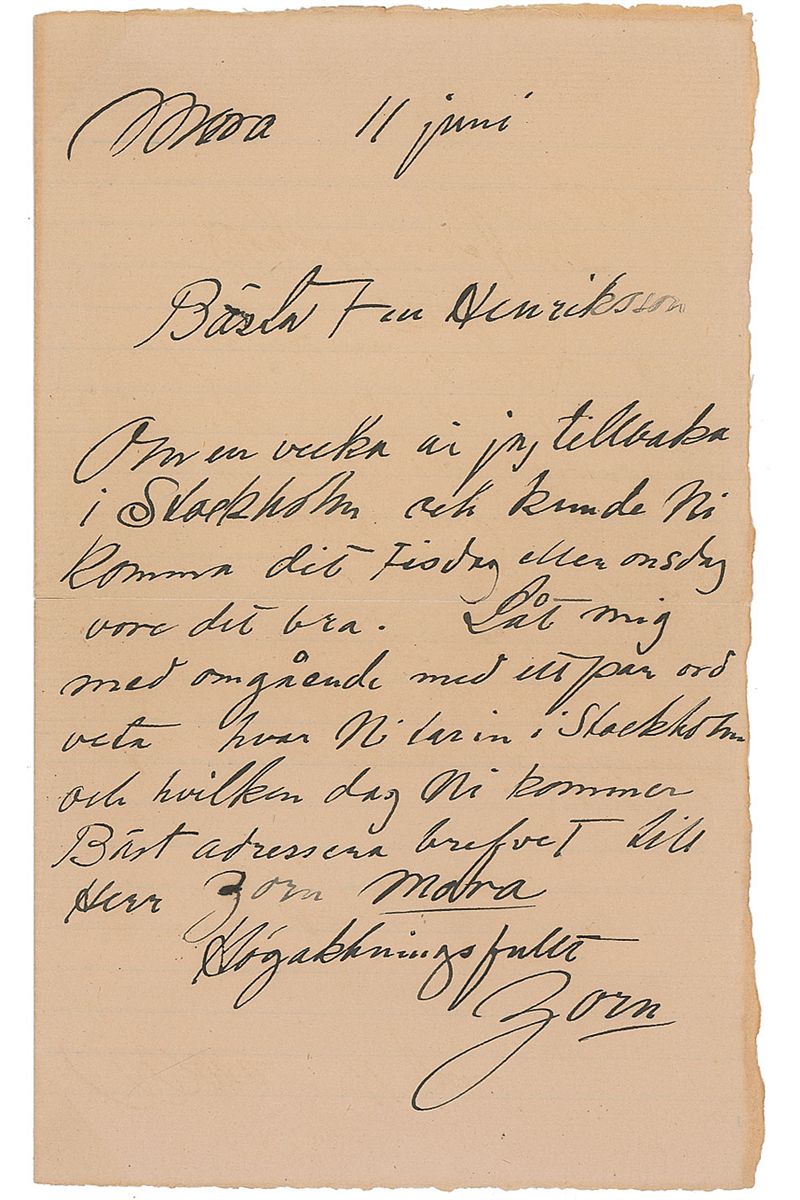 Mora 11 juni
Bästa Fru Henriksson
Om en vecka är jag tillbaka
i Stockholm och kunde Ni
komma dit Tisdag eller onsdag
vore det bra. Låt mig
med omgående med ett par ord
veta hvar Ni tar in i Stockholm
och hvilken dag Ni kommer
Bäst adressera brefvet till
Herr Zorn Mora
Högaktningsfullt
Zorn